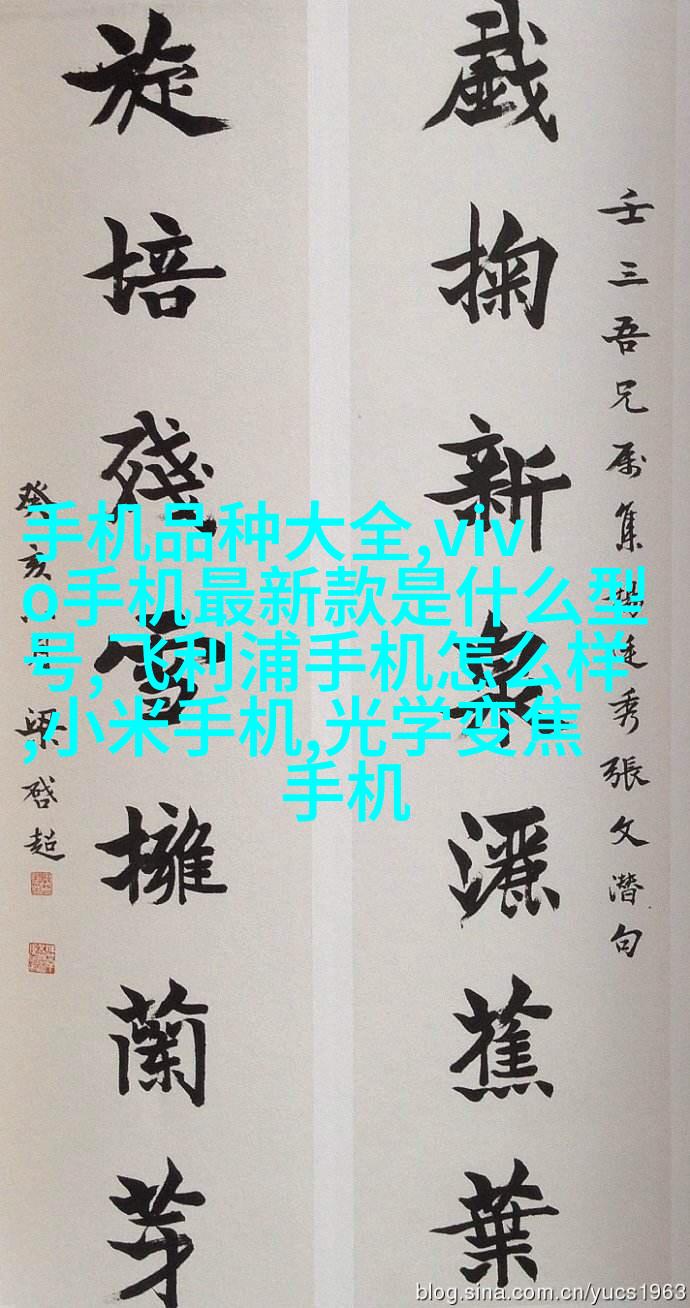 壬三吾兄属集楊廷秀張文潛句
戲掬新泉灑蕉葉
旋培殘雪擁蘭芽
癸亥 月 梁启超
手机品种大全,viv
o手机最新款是什么型
号,飞利浦手机怎么样
,小米手机,光学变焦
手机
blog.sina.com.cn/yucs1963